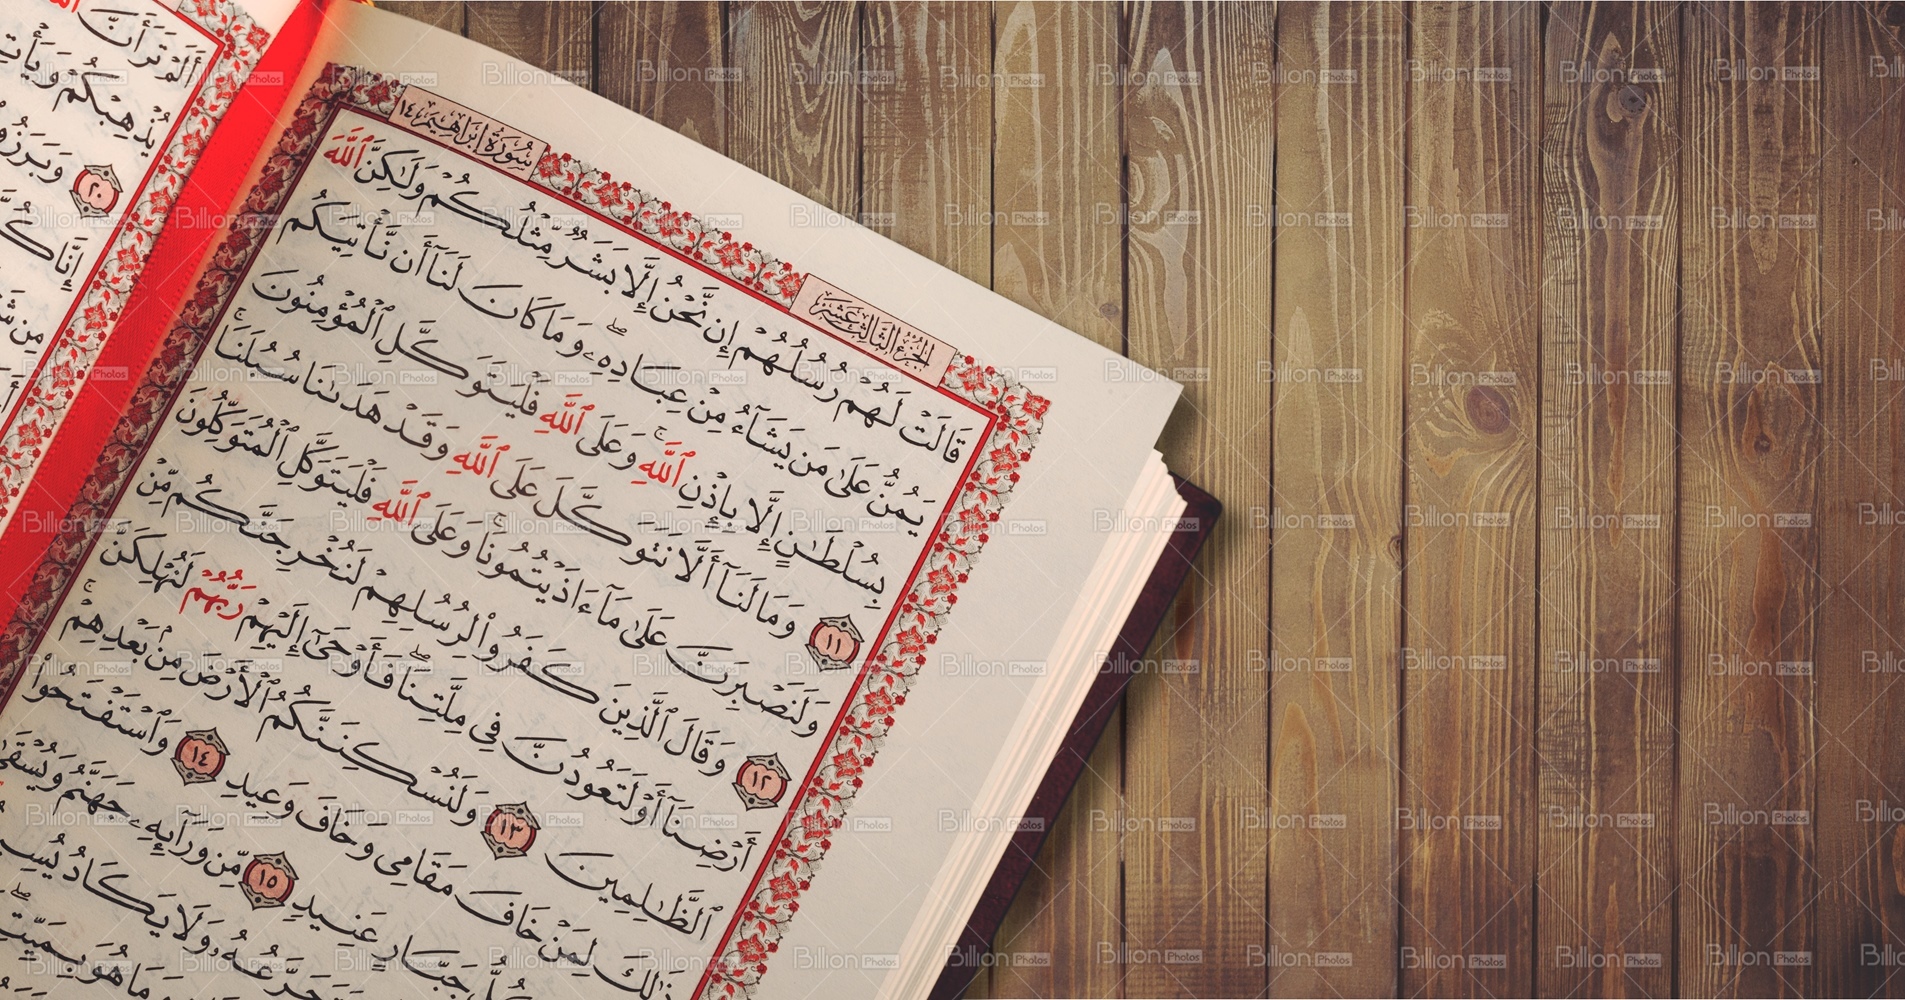 سُورَةُ إِبْرَاهِيمَ ١٤
الجُزْءُ الثَّالِثَ عَشَرَ
قَالَتْ لَهُمْ رُسُلُهُمْ إِن نَّحْنُ إِلَّا بَشَرٌ مِّثْلُكُمْ وَلَٰكِنَّ ٱللَّهَ
يَمُنُّ عَلَىٰ مَن يَشَآءُ مِنْ عِبَادِهِۦ ۖ وَمَا كَانَ لَنَآ أَن نَّأْتِيَكُم
بِسُلْطَٰنٍ إِلَّا بِإِذْنِ ٱللَّهِ ۚ وَعَلَى ٱللَّهِ فَلْيَتَوَكَّلِ ٱلْمُؤْمِنُونَ
١١ وَمَا لَنَآ أَلَّا نَتَوَكَّلَ عَلَى ٱللَّهِ وَقَدْ هَدَىٰنَا سُبُلَنَا ۚ
وَلَنَصْبِرَنَّ عَلَىٰ مَآ ءَاذَيْتُمُونَا ۚ وَعَلَى ٱللَّهِ فَلْيَتَوَكَّلِ ٱلْمُتَوَكِّلُونَ
١٢ وَقَالَ ٱلَّذِينَ كَفَرُوا۟ لِرُسُلِهِمْ لَنُخْرِجَنَّكُم مِّنْ
أَرْضِنَآ أَوْ لَتَعُودُنَّ فِى مِلَّتِنَا ۖ فَأَوْحَىٰٓ إِلَيْهِمْ رَبُّهُمْ لَنُهْلِكَنَّ
ٱلظَّٰلِمِينَ ١٣ وَلَنُسْكِنَنَّكُمُ ٱلْأَرْضَ مِنۢ بَعْدِهِمْ ۚ
ذَٰلِكَ لِمَنْ خَافَ مَقَامِى وَخَافَ وَعِيدِ ١٤ وَٱسْتَفْتَحُوا۟
كُلُّ جَبَّارٍ عَنِيدٍ ١٥ مِّن وَرَآئِهِۦ جَهَنَّمُ وَيُسْقَىٰ
يَتَجَرَّعُهُۥ وَلَا يَكَادُ
وَمَا هُوَ بِمَيِّتٍ ۖ
أَلَمْ تَرَ أَنَّ
يُذْهِبْكُمْ وَيَأْتِ
٢٠ وَبَرَزُوا۟
إِنَّا كُ
مِن شَ
Billion Photos